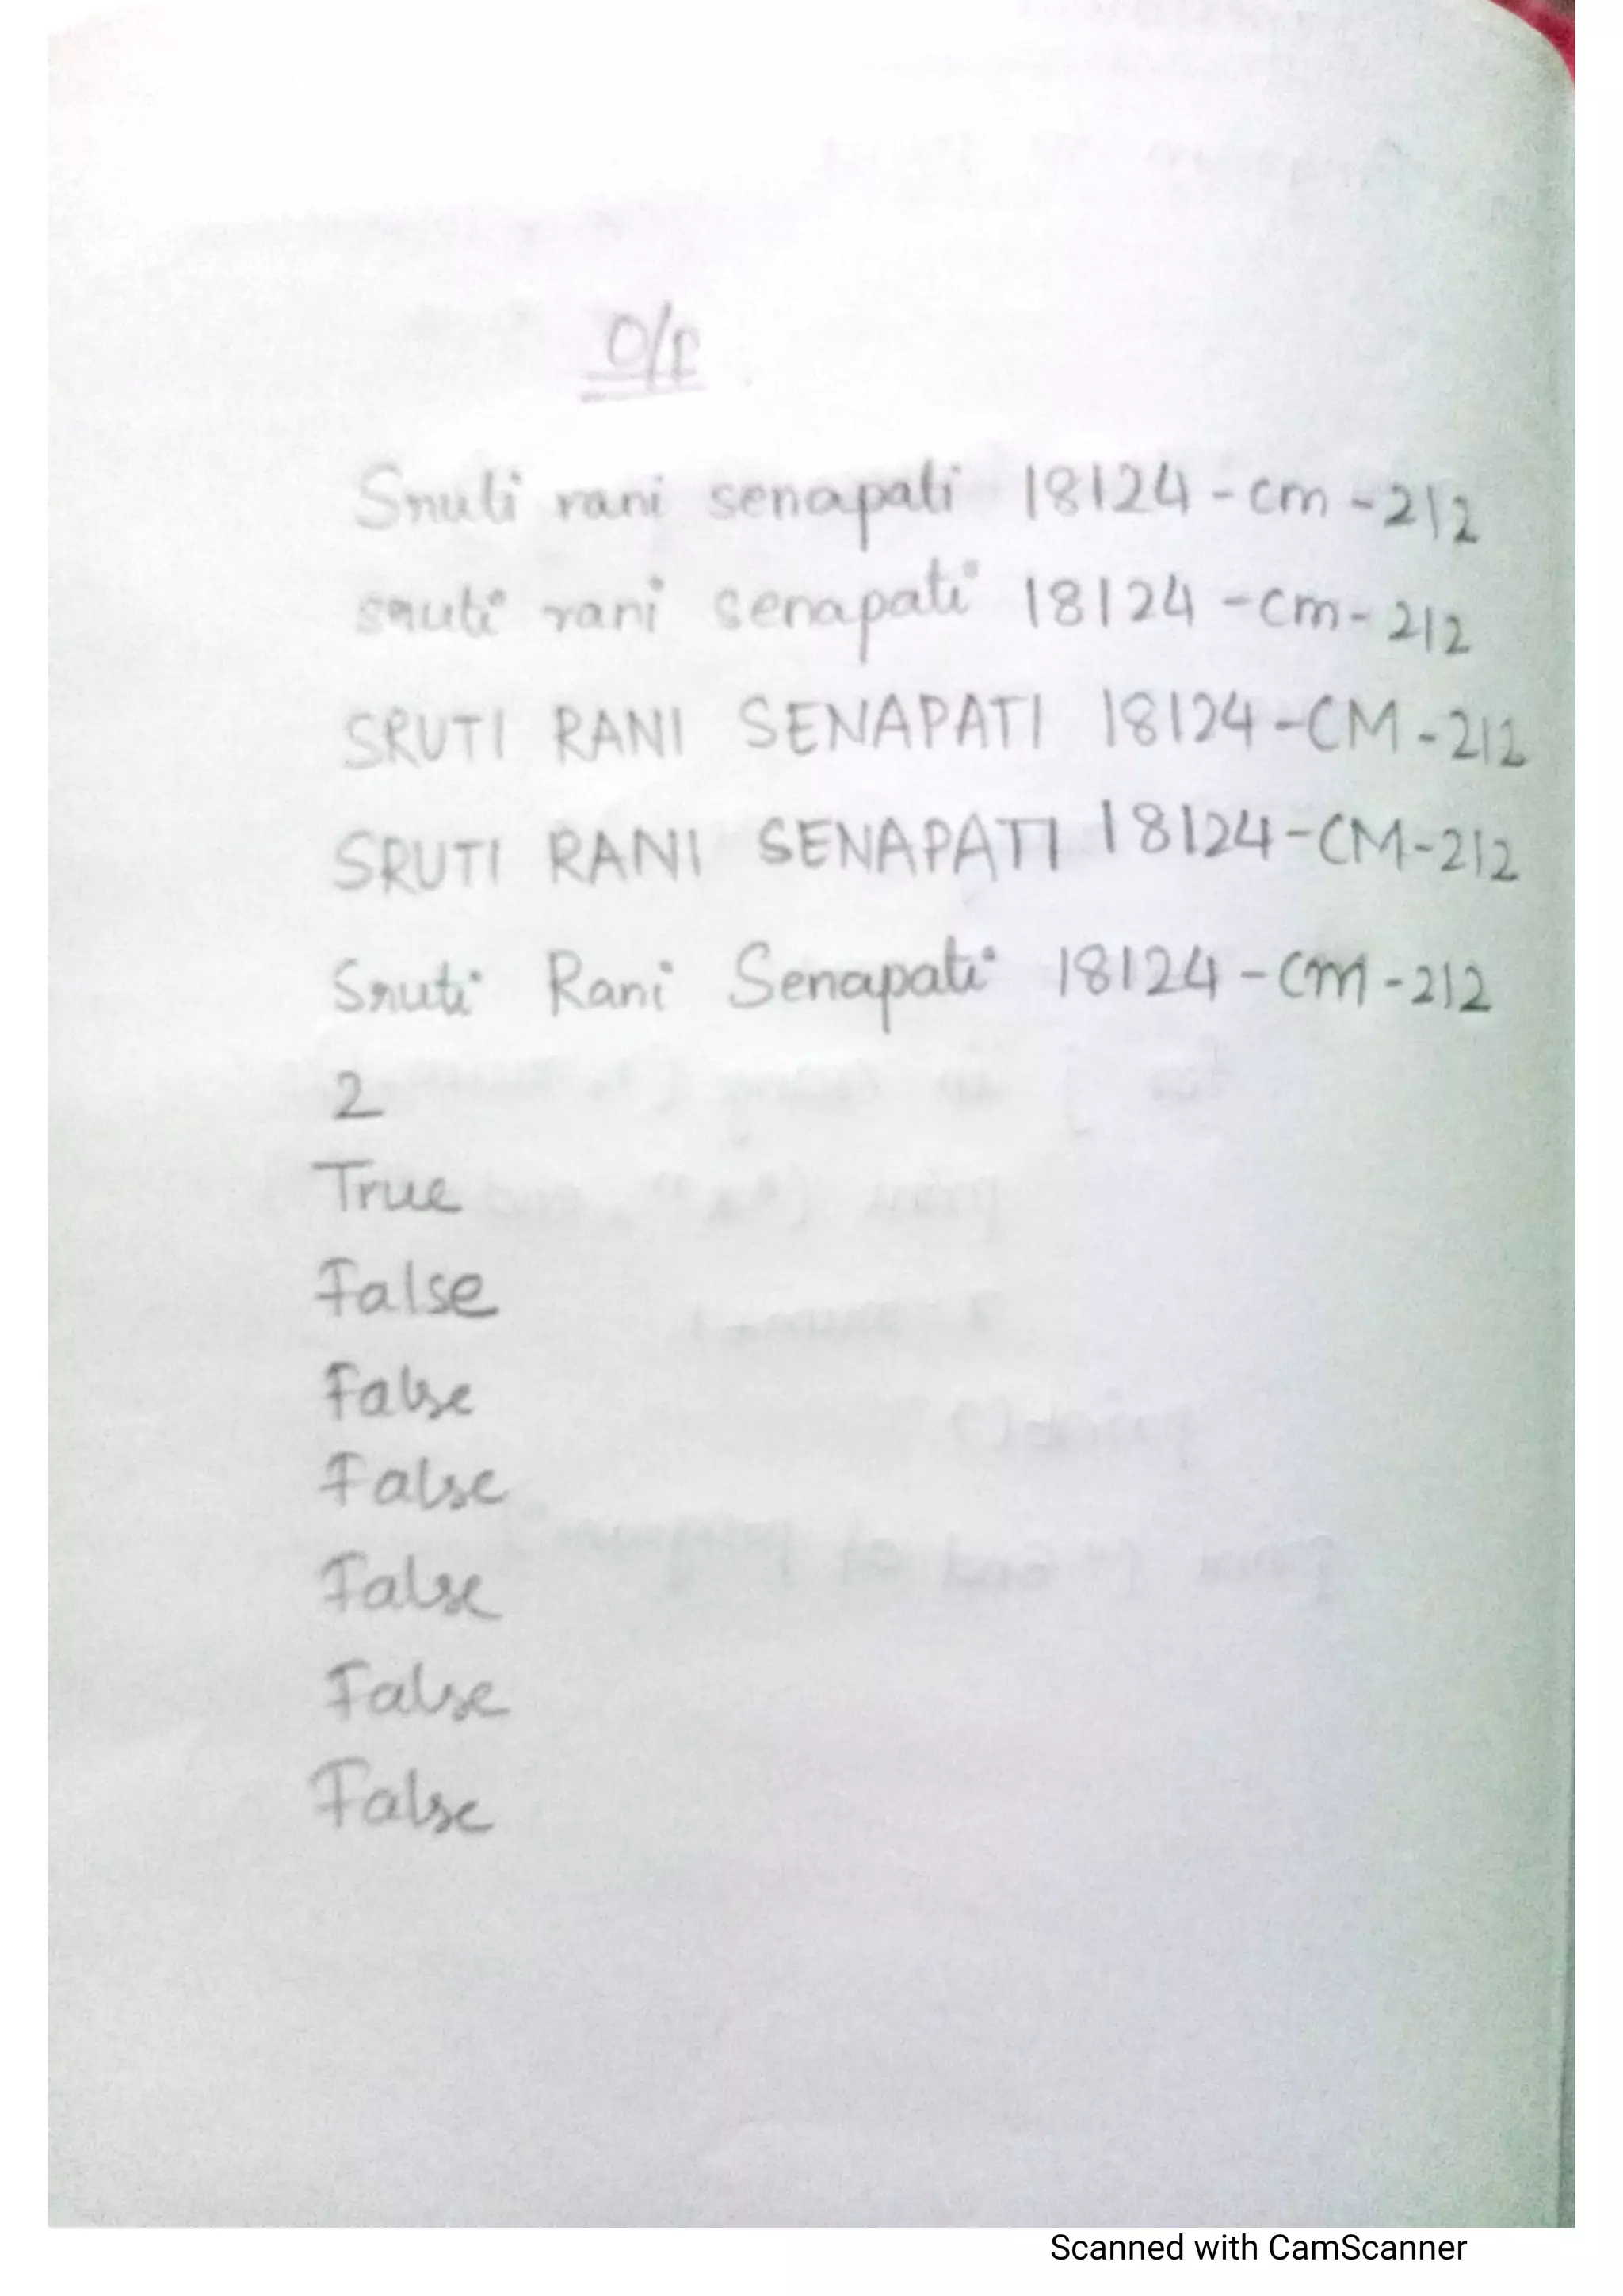 O/P
Sruti rani senapati 18124-cm-212
sruti rani senapati 18124-cm-212
SRUTI RANI SENAPATI 18124-CM-212
SRUTI RANI SENAPATI 18124-CM-212
Sruti Rani Senapati 18124-CM-212
2
True
False
False
False
False
False
False
Scanned with CamScanner